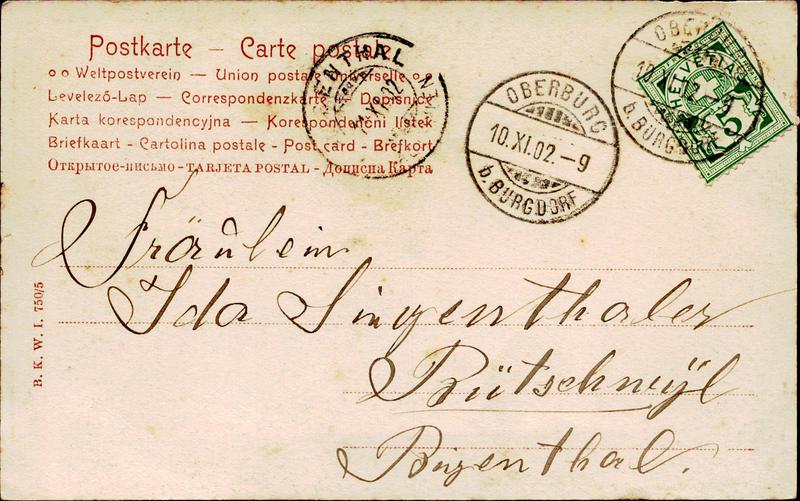 Postkarte — Carte postale
Weltpostverein — Union postale universelle
Levelező-Lap — Correspondenzkarte — Dopisnice
Karta korespondencyjna — Korespondenční lístek
Briefkaart - Cartolina postale - Post card - Brefkort
Открытое-письмо - TARJETA POSTAL - Дописна Карта
ENTHAL
XI.02
OBERBURG
10.XI.02.-9
b.BURGDORF
OBER
10.X
b.BURGDORF
HELVETIA
5
Fräulein
Ida Singenthaler
Rütschwyl
B. K. W. I. 750/5